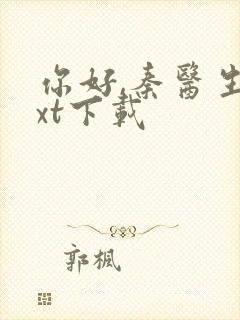 你好,秦醫生
xt下載
郭楓